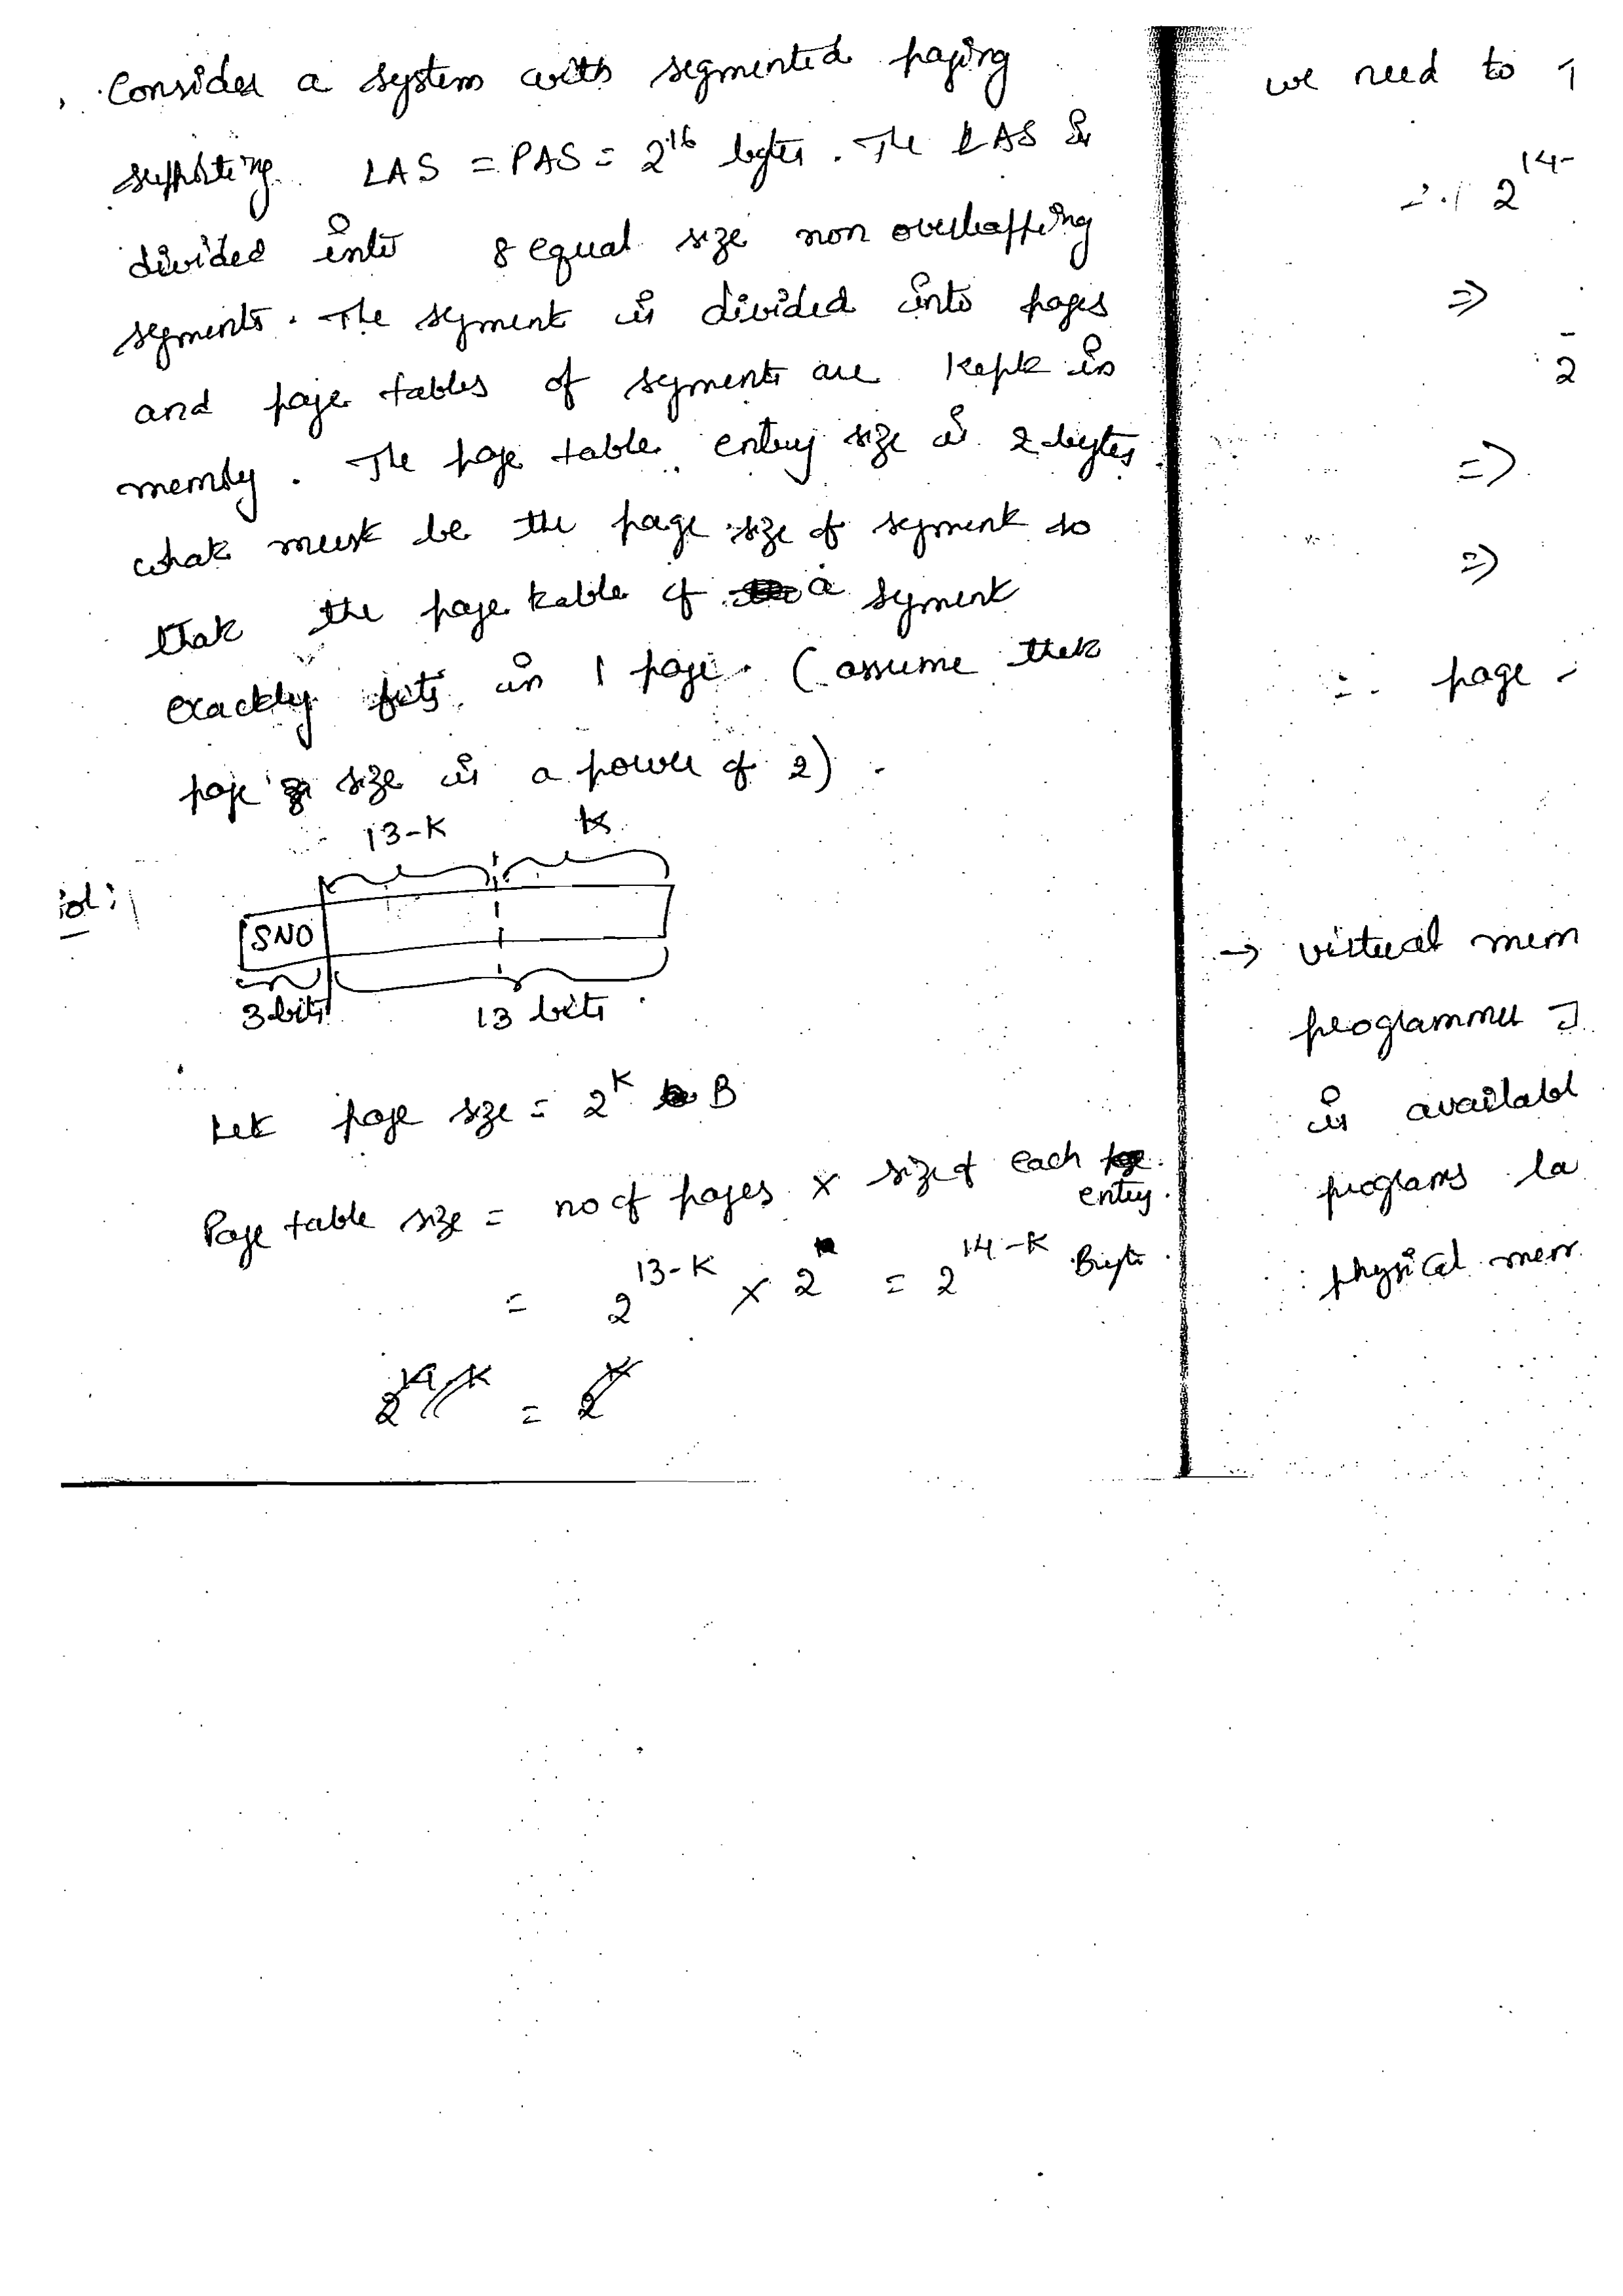 Consider a system with segmented paging
supporting LAS = PAS = 2^16 bytes. The LAS is
divided into 8 equal size non overlapping
segments. The segment is divided into pages
and page tables of segments are kept in
memory. The page table entry size is 2 bytes.
what must be the page size of segment so
that the page table of a segment
exactly fits in 1 page. (assume that
page size is a power of 2).
13-K K
Sol:
SNO
3 bits 13 bits
Let page size = 2^K B
Page table size = no of pages × size of each
entry.
= 2^(13-K) × 2 = 2^(14-K) Bytes.
2^(14-K) = 2^K
we need to
∴ 2^14-
⇒
2
⇒
⇒
∴ page
→ virtual mem
programmer
is availabl
programs la
physical mem